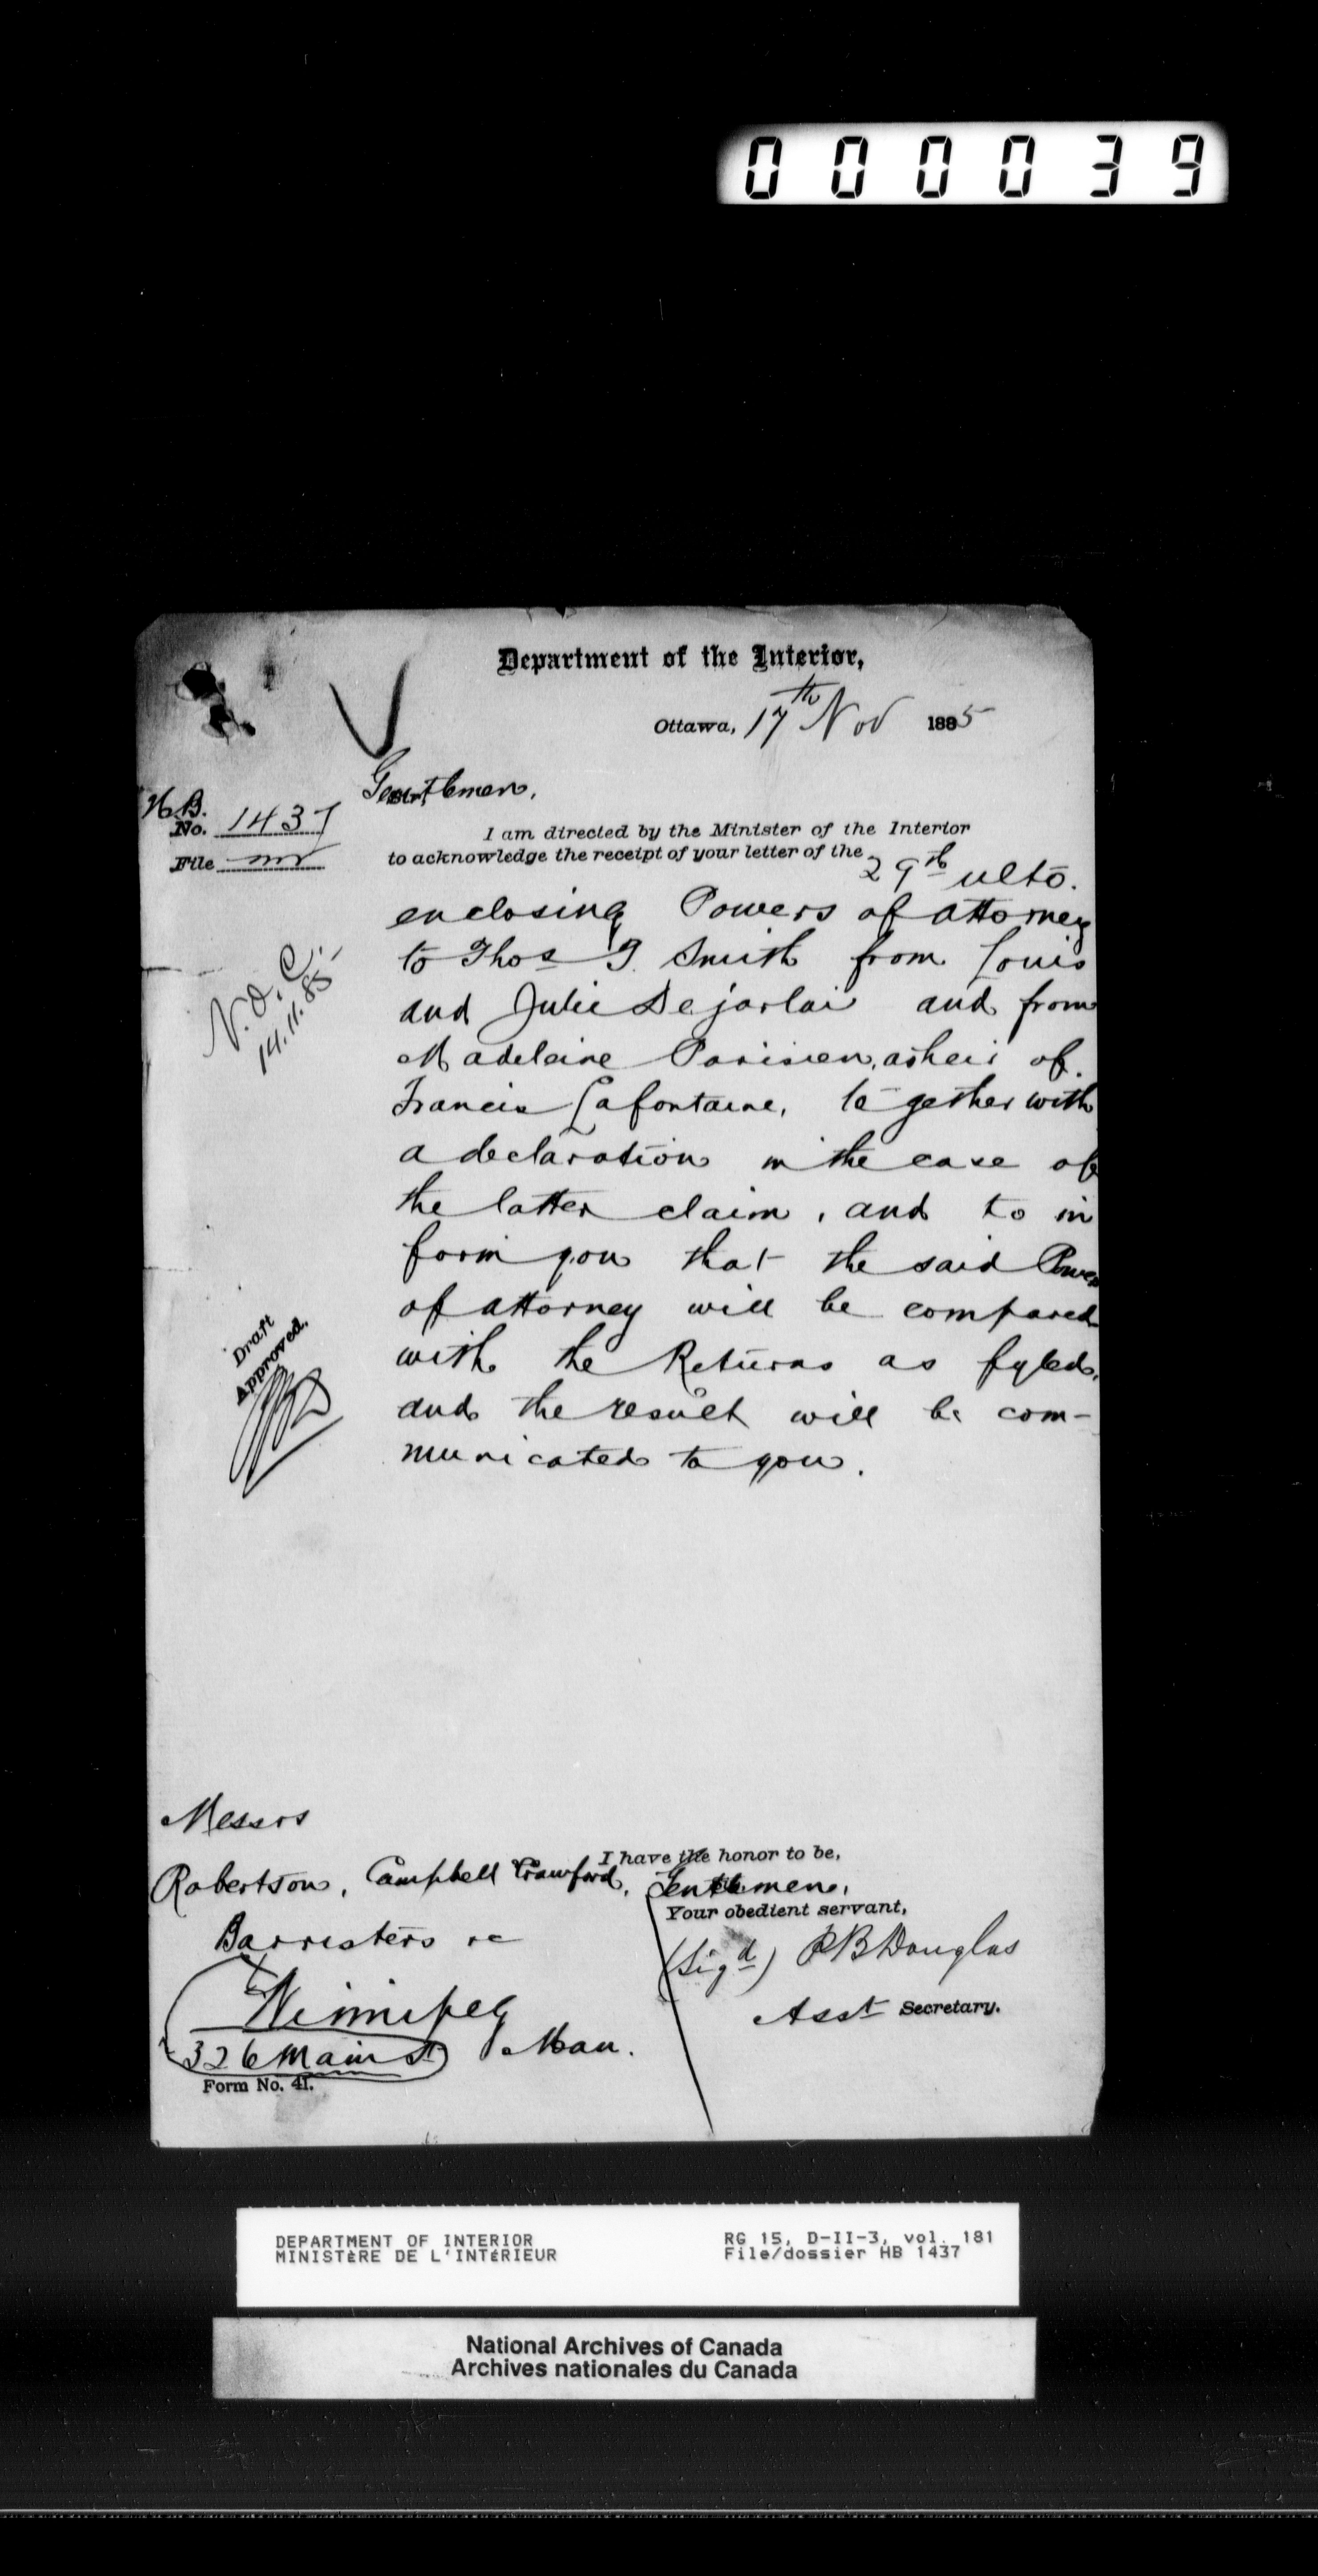 000039
Department of the Interior,
Ottawa, 17th Nov 1885
Gentlemen,
H B.
No. 1437
File
I am directed by the Minister of the Interior
to acknowledge the receipt of your letter of the
29th ulto.
enclosing Powers of attorney
to Thos T. Smith from Louis
and Julie Dejarlai and from
Madeleine Parisien, as heir of
Francis Lafontaine, together with
a declaration in the case of
the latter claim, and to in
form you that the said Power
of attorney will be compared
with the Returns as fyled,
and the result will be com-
municated to you.
N.O.C.
14.11.85-
Draft
Approved.
Messrs
Robertson, Campbell Crawford,
Barristers &c
Winnipeg
326 Main St Man.
Form No. 41.
I have the honor to be,
Gentlemen,
Your obedient servant,
(Sigd) P B Douglas
Asst Secretary.
DEPARTMENT OF INTERIOR
MINISTÈRE DE L'INTÉRIEUR
RG 15, D-II-3, vol. 181
File/dossier HB 1437
National Archives of Canada
Archives nationales du Canada